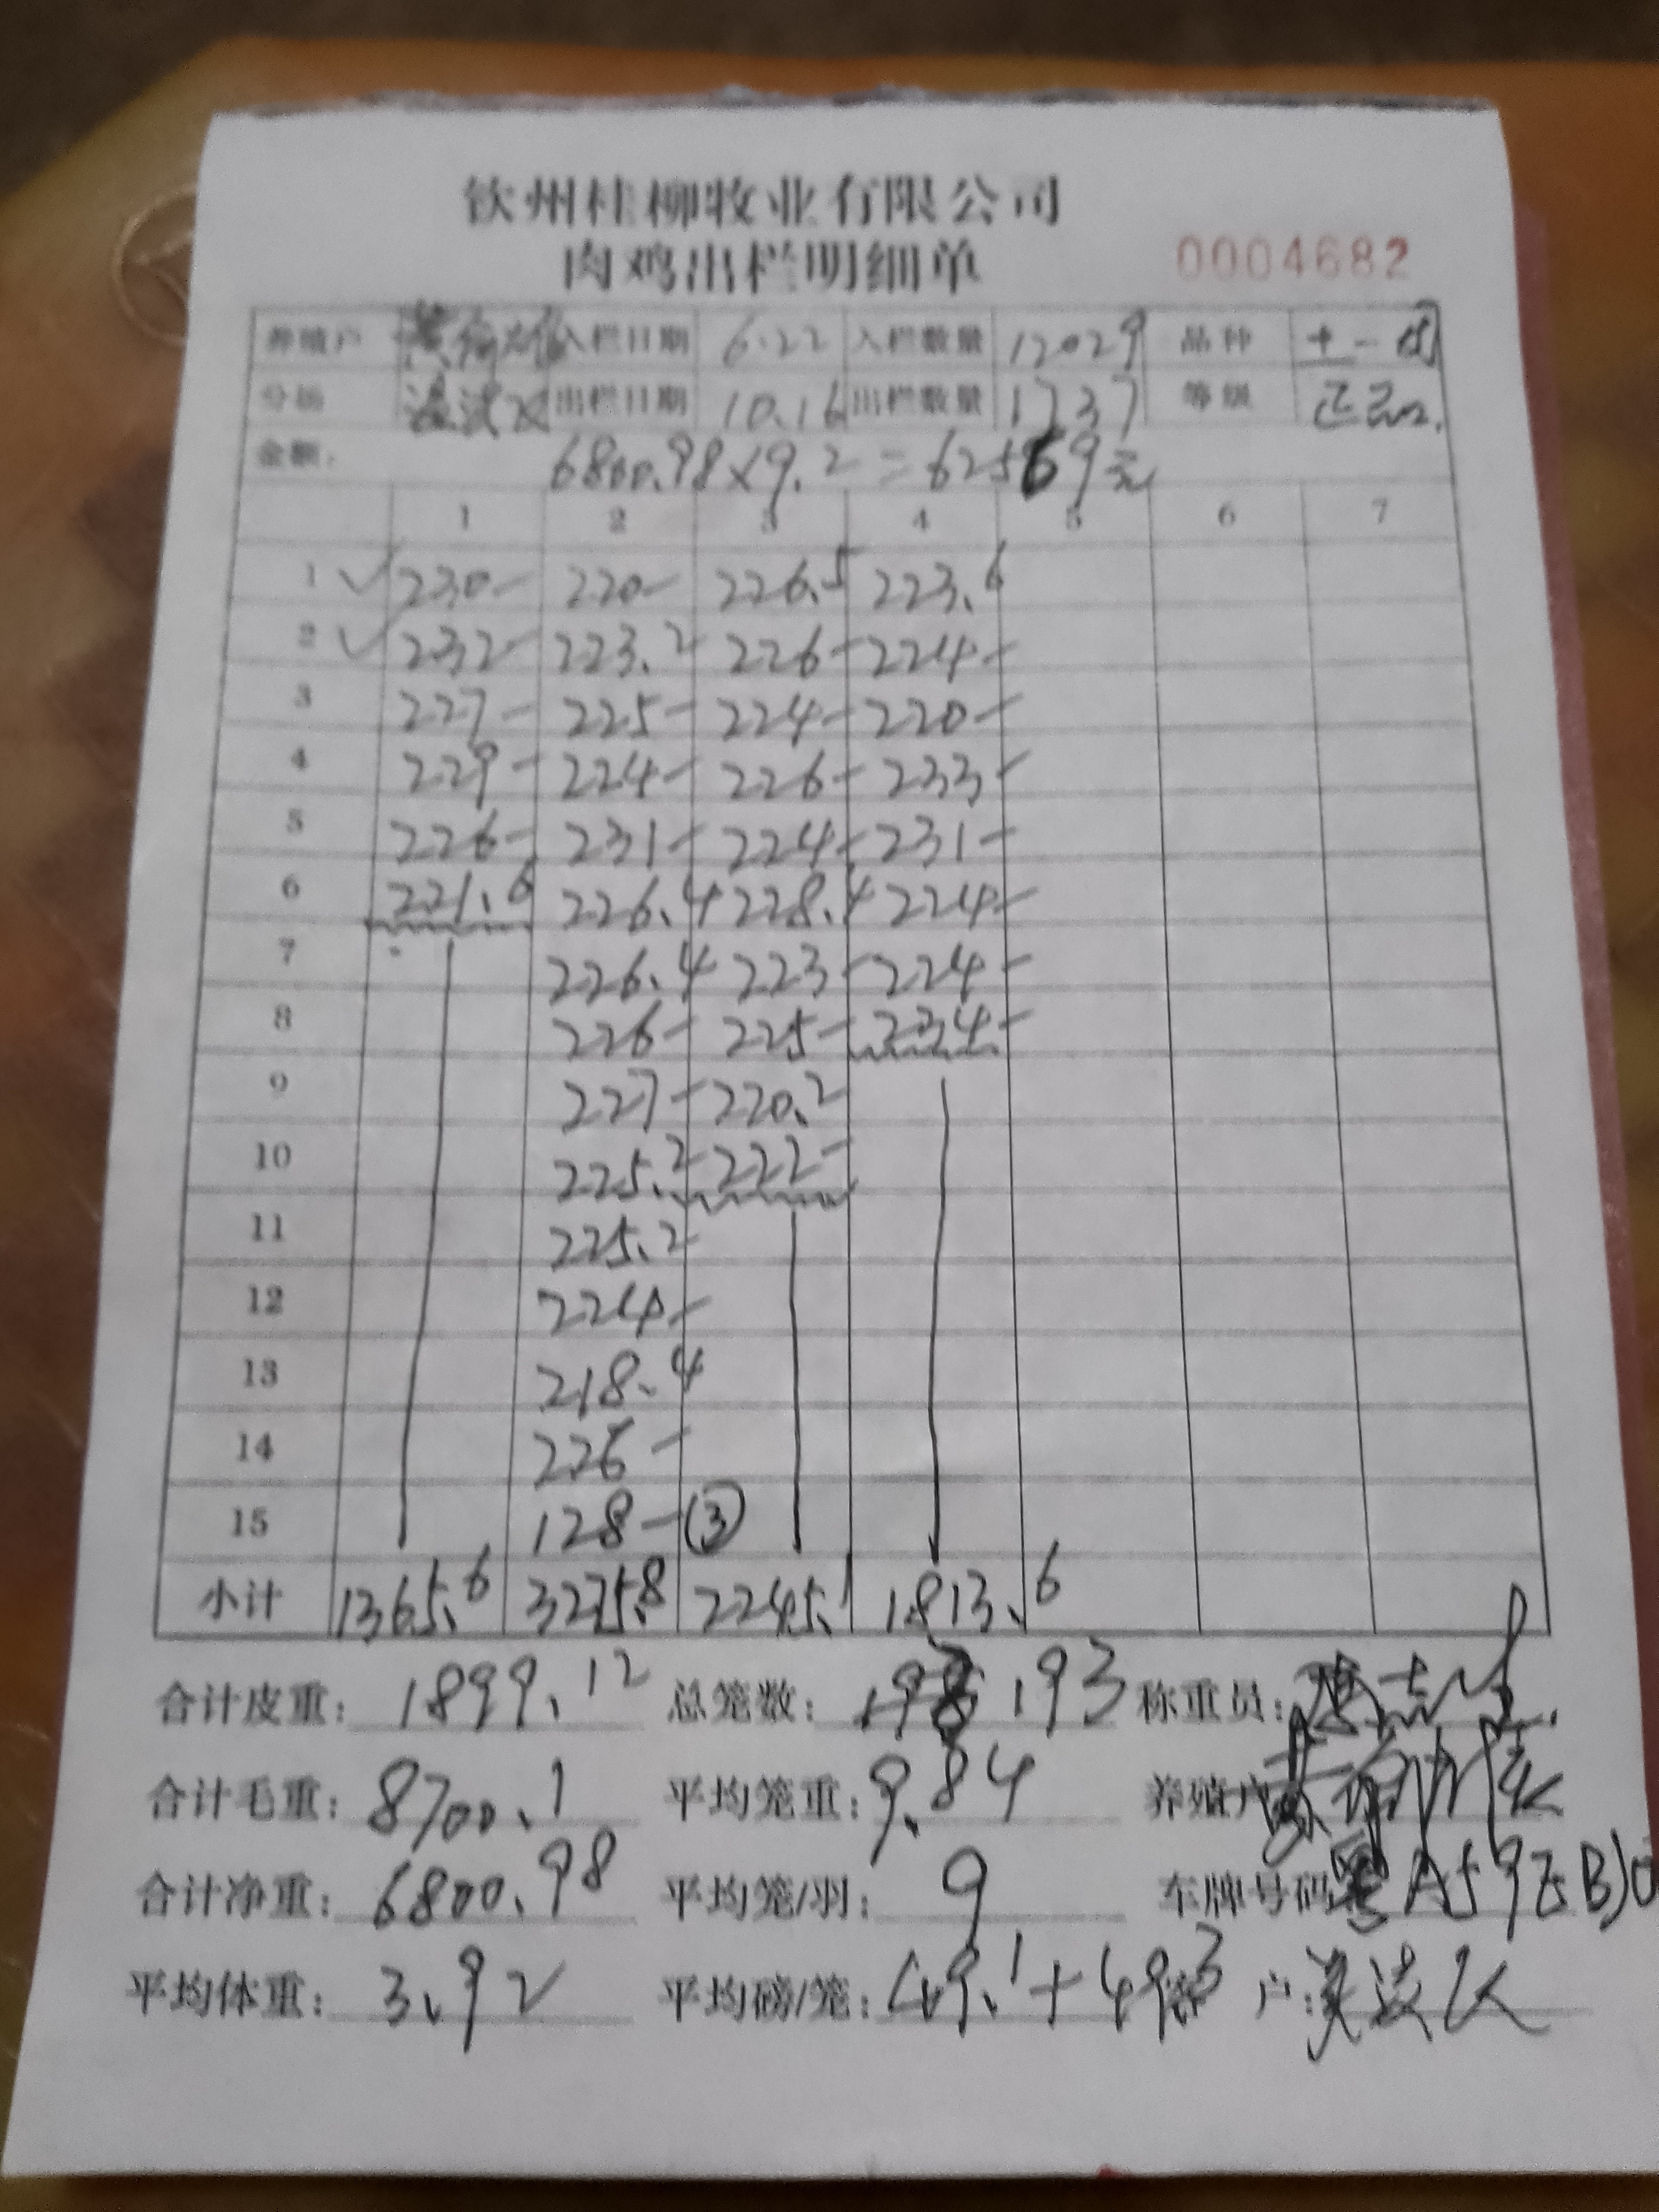 钦州桂柳牧业有限公司
肉鸡出栏明细单 0004682
养殖户 入栏日期 6.22 入栏数量 12029 品种 十一
分场 出栏日期 10.16 出栏数量 1737 等级 正
金额: 6800.98×9.2=62569元
1 2 3 4 5 6 7
1 ✓ 230- 220- 226.5 223.6
2 ✓ 232- 223.2 226- 224-
3 227- 225- 224- 220-
4 229- 224- 226- 233-
5 226- 231- 224- 231-
6 221.6 226.4 228.4 224-
7 226.4 223- 224-
8 226- 225- 234-
9 227- 220.2
10 225.2 222-
11 225.2
12 224-
13 218.4
14 226-
15 128- ③
小计 1365.6 3275.8 2245.1 1813.6
合计皮重: 1899.12 总笼数: 193 称重员:
合计毛重: 8700.1 平均笼重: 9.84 养殖户
合计净重: 6800.98 平均笼/羽: 9 车牌号码
平均体重: 3.92 平均磅/笼: 49.1+49.3 户: